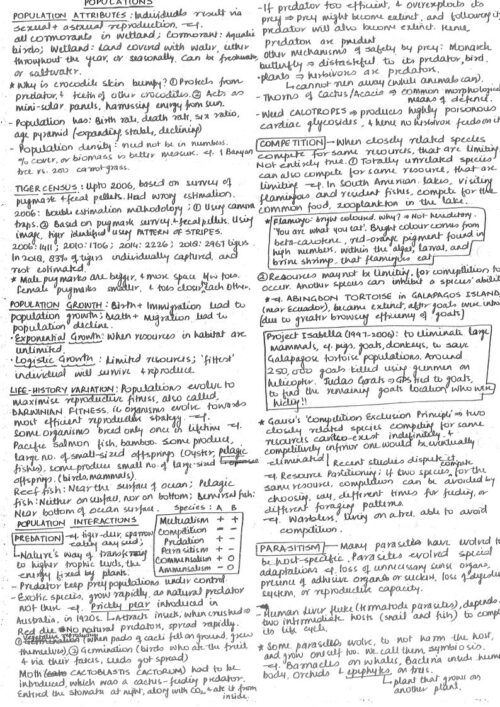 POPULATIONS
POPULATION ATTRIBUTES: Individuals result via
sexual + asexual reproduction. eg.
all cormorants in wetland; Cormorant: Aquatic
birds; Wetland: Land covered with water, either
throughout the year, or seasonally. Can be freshwater
or saltwater.
* Why is crocodile skin bumpy? ① Protects from
predator, & teeth of other crocodiles. ② Acts as
mini-solar panels, harnessing energy from sun.
- Population has: Birth rate, death rate, sex ratio,
age pyramid (expanding, stable, declining)
- Population density: need not be in numbers.
% cover, or biomass is better measure. eg. 1 Banyan
tree vs. 200 carrot grass.
TIGER CENSUS: Upto 2006, based on survey of
pugmark & fecal pellets. Had wrong estimation.
2006: Double estimation methodology; ① Using camera
traps. ② Based on pugmark survey & fecal pellets. Using
image, tiger identified using PATTERN OF STRIPES.
2006: 1411; 2010: 1706; 2014: 2226; 2018: 2967 tigers.
In 2018, 83% of tigers individually captured, and
not estimated.
* Male pugmarks are bigger, & more space b/w toes.
Female pugmarks smaller, & toes closer each other.
POPULATION GROWTH: Birth + Immigration lead to
population growth; Death + Migration lead to
population decline.
- Exponential Growth: When resources in habitat are
unlimited.
- Logistic Growth: Limited resources; 'fittest'
individual will survive & reproduce.
LIFE-HISTORY VARIATION: Populations evolve to
maximise reproductive fitness, also called,
DARWINIAN FITNESS, ie organisms evolve towards
most efficient reproductive strategy eg.
Some organisms breed only once in lifetime eg.
Pacific Salmon fish, bamboo. Some produce,
large no. of small-sized offsprings (Oyster, Pelagic
fishes), some produce small no. of large-sized
offsprings. (birds, mammals)
Reef fish: Near the surface of ocean; Pelagic
fish: Neither on surface, nor on bottom; Demersal fish:
Near bottom of ocean surface.
POPULATION INTERACTIONS
Species: A B
Mutualism + +
Competition - -
Predation + -
Parasitism + -
Commensalism + 0
Amensalism - 0
PREDATION → eg. tiger-deer, sparrow
eating any seed;
→ Nature's way of transferring
to higher trophic levels, the
energy fixed by plants.
- Predators keep prey populations under control
- Exotic species, grow rapidly, as natural predator
not there eg. Prickly pear introduced in
Australia, in 1920s. Extracts insect, when crushed →
Red dye. No natural predator, spread rapidly.
① Vegetative reproduction (When pads of each fell on ground, grew
themselves) ② Germination (birds who ate the fruit
& via their faeces, seeds got spread)
Moth CACTOBLASTIS CACTORUM) had to be
introduced, which was a cactus-feeding predator.
Entered the stomata at night, along with CO₂, & ate it from
inside.
- If predator too efficient, & overexploits its
prey ⇒ Prey might become extinct, and following it,
predator will also become extinct. Hence,
Predators are prudent
- Other mechanisms of safety by prey: Monarch
butterfly ⇒ distasteful to its predator, bird.
- Plants → Herbivores are predators.
↳ cannot run away (unlike animals can).
- Thorns of Cactus/Acacia ⇒ common morphological
means of defence.
- Weed CALOTROPIS ⇒ produces highly poisonous
cardiac glycosides, & hence no herbivore feeds on it
COMPETITION → When closely related species
compete for same resources, that are limiting.
Not entirely true. ① Totally unrelated species
can also compete for same resource, that are
limiting eg. In South American lakes, visiting
flamingoes and resident fishes, compete for the
common food, zooplankton in the lake.
* Flamingo: bright coloured. Why? ⇒ Not hereditary.
'You are what you eat'. Bright colour comes from
beta-carotene, red-orange pigment found in
high number, within the algae, larvae, and
brine shrimp, that flamingoes eat
② Resources may not be limiting, for competition to
occur. Another species can inhibit a species' ability
* eg. ABINGDON TORTOISE in GALAPAGOS ISLAND
(near Ecuador), became extinct, after goats were introduced
(due to greater browsing efficiency of goats)
Project Isabella (1997-2006): to eliminate large
mammals, eg. pigs, goats, donkeys, to save
Galapagose tortoise populations. Around
250,000 goats killed using gunmen on
helicopter. Judas Goats → GPS tied to goats,
to find the remaining goats location who were
hiding!!
* Gause's 'Competition Exclusion Principle' ⇒ two
closely related species competing for same
resources cannot co-exist indefinitely, &
competitively inferior one would be eventually
eliminated. Recent studies dispute it.
eg. Resource Partitioning; if two species compete for the
same resource, competition can be avoided by
choosing, say, different times for feeding, or
different foraging patterns
eg. Warblers, living on a tree, able to avoid
competition.
PARASITISM → Many parasites have evolved to
be host-specific. Parasites evolved special
adaptations eg. loss of unnecessary sense organs,
presence of adhesive organs or suckers, loss of digestive
system, or reproductive capacity.
- Human liver fluke (trematode parasite), depends on
two intermediate hosts (snail and fish) to complete
its life cycle.
* Some parasites evolve, to not harm the host,
and grow on itself too. We call them, symbiosis.
eg. Barnacles on whales, Bacteria inside human
body, Orchids & epiphytes on tree.
↳ plant that grow on
another plant.